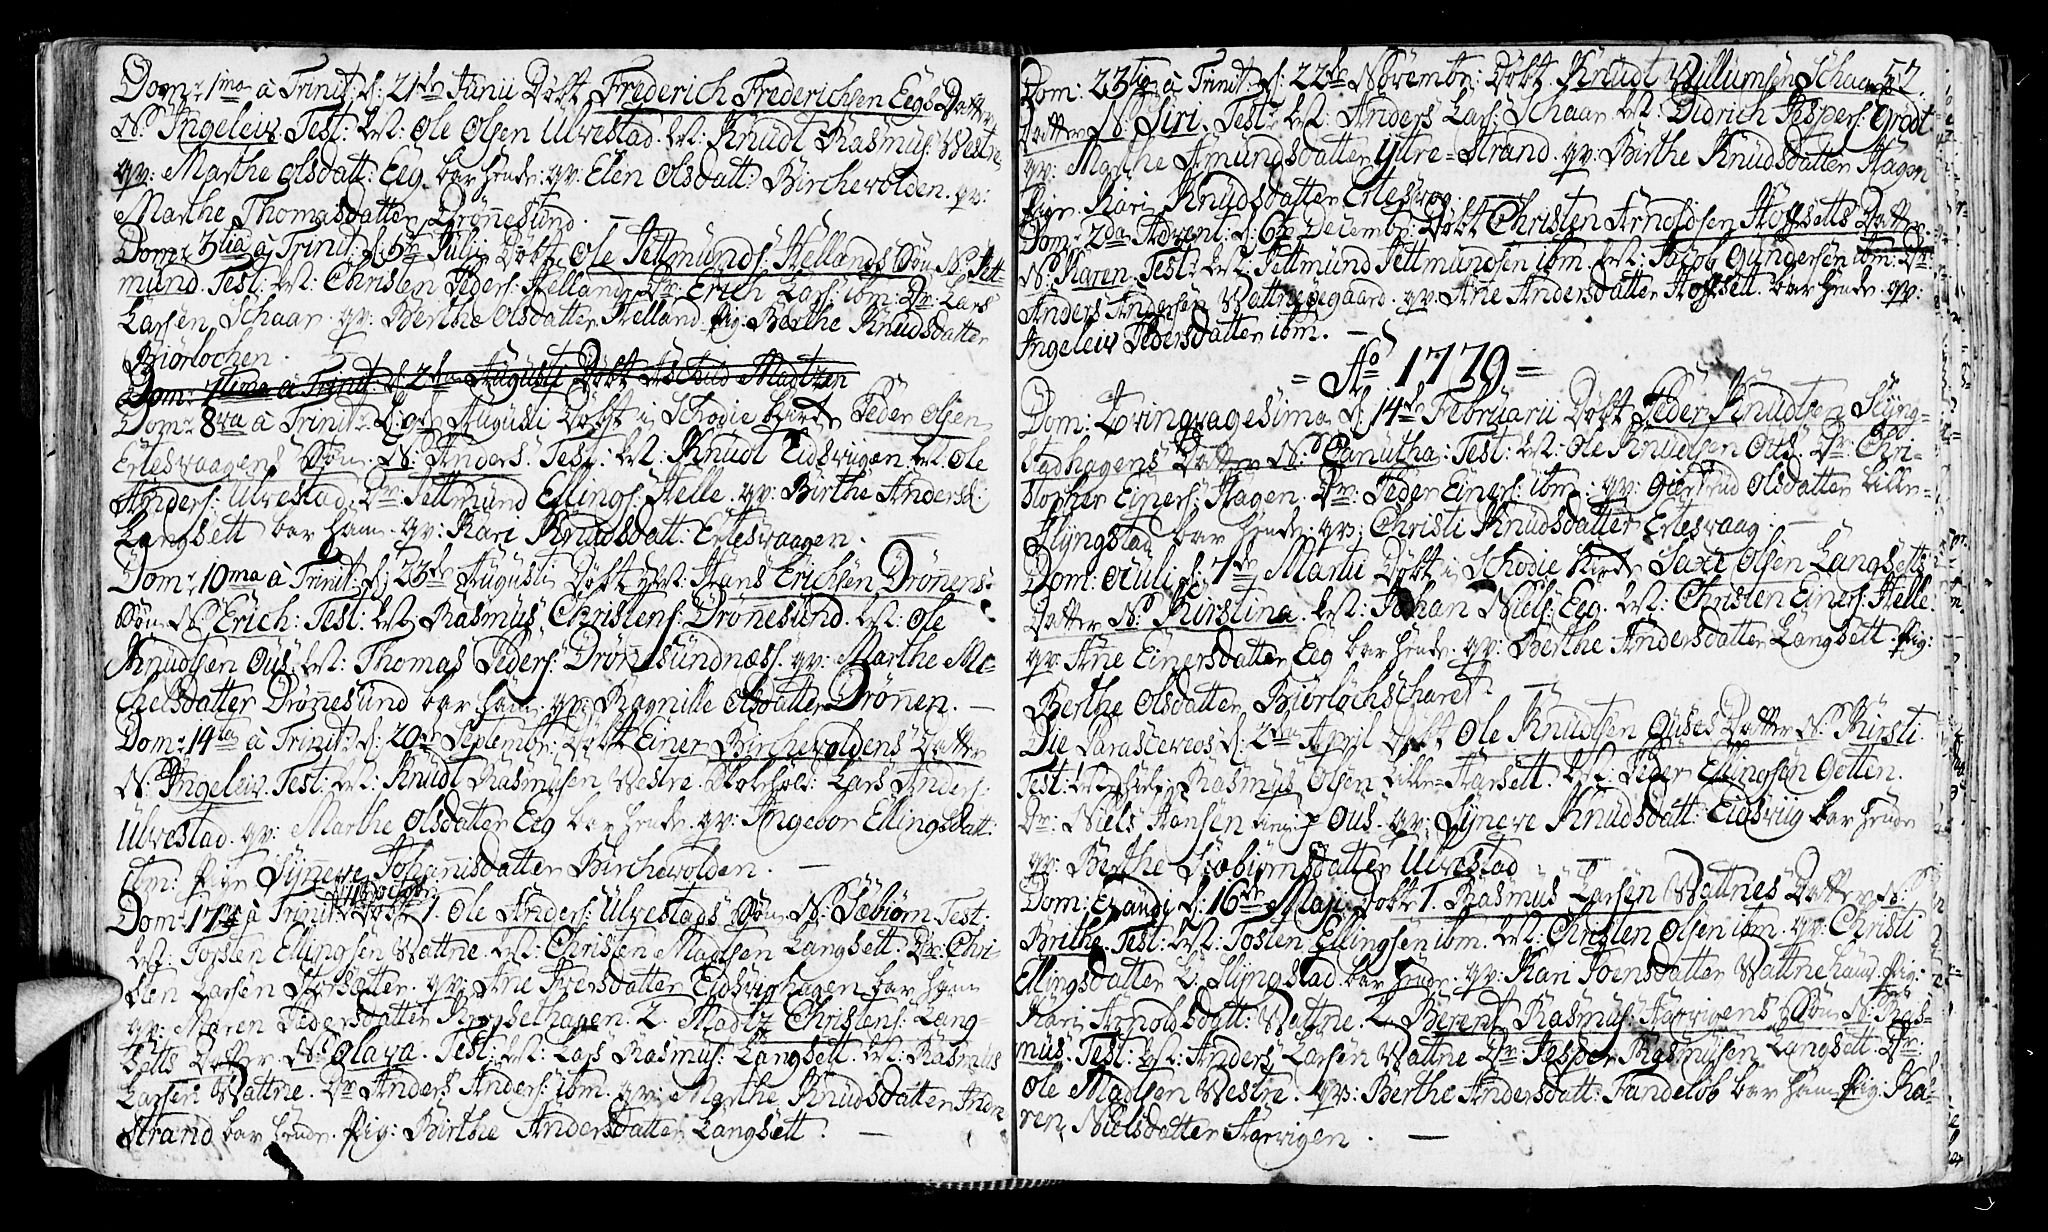 Dom: 1ma à Trinit: d: 21de Junii Døbt Frederich Frederichsen Eegs Datter
N: Ingeleiv. Test: M: Ole Olsen Ulvestad. M: Knudt Rasmus: Vestre
qv: Marthe Olsdatt: Eeg bar hende. qv: Elen Olsdatt: Birchevolden. qv:
Marthe Thomasdatter Drönnesund. —
Dom: 3tia à Trinit: d: 5te Julii Døbt Ole Jettmunds: Hellands Søn N: Jett-
mund. Test: M: Christen Peders: Helland Dr: Erich Lars: ibm: Dr: Lars
Larsen Schaar. qv: Berthe Olsdatter Helland. Pig: Berthe Knudsdatter
Biörlochen. —
Dom: 7tima à Trinit: d: 2den Augusti Døbt Aschild Madtzen
Dom: 8va à Trinit: d: 9de Augusti Døbt i Schodie Kirche Peder Olsen
Ertesvaagens Søn. N: Anders. Test: M: Knudt Eidsvigen. M: Ole
Anders: Ulvestad. Dr: Jettmund Ellings: Helle. qv: Birthe Andersd:
Langsett bar ham. qv: Kari Knudsdatt: Ertesvaagen. —
Dom: 10ma à Trinit: d: 23de Augusti Døbt M: Hans Erichsen Drönnens
Søn N: Erich. Test: M: Rasmus Christens: Drönesund. M: Ole
Knudsen Ous. M: Thomas Peders: Drönesundnæss. qv: Marthe Mi-
chelsdatter Drönesund bar ham. qv: Ragnille Olsdatter Drönen. —
Dom: 14ta à Trinit: d: 20de Septembr: Døbt Einer Birchevoldens Datter
N: Ingeleiv. Test: M: Knudt Rasmusen Vestre. Lars Anders:
Ulvestad. qv: Marthe Olsdatter Eeg bar hende. qv: Ingebor Ellingsdatt:
ibm: Pigen Synneve Johannisdatter Birchevolden. —
Dom: 17 à Trinit: Døbt 1. Ole Anders: Ulvestads Søn N: Sebiörn Test:
M: Torsten Ellingsen Vattne. M: Christen Madsen Langsett. Dr: Chri-
sten Larsen Storsætter. qv: Ane Iversdatter Eidsvighagen bar ham
qv: Maren Pedersdatter Røpselhagen. 2. Madtz Christens: Lang-
setts Datter N: Olava. Test: M: Lars Rasmus: Langsett. M: Rasmus
Larsen Vattne. Dr: Anders Anders: ibm. qv: Marthe Knudsdatter Indre
Strand bar hende. Pig: Birthe Andersdatter Langsett. —
57.
Dom: 23tia à Trinit: d: 22de Novembr: Døbt Knudt Villumsen Schaars
Datter N: Siri. Test: M: Anders Lars: Schaar. M: Didrich Jespers: Grodt
qv: Marthe Amundsdatter Ytre-Strand. qv: Birthe Knudsdatter Hagen
Pigen Kari Knudsdatter Ertesvog. —
Dom: 2da Advent: d: 6te Decembr: Døbt Christen Arnoldsen Hoffsetts Datter
N: Maren. Test: M: Jettmund Jettmundsen ibm M: Jacob Gundersen ibm: Dr:
Anders Andersen Vattnegegaard. qv: Ane Andersdatter Hoffsett bar hende. qv:
Ingeleiv Pedersdatter ibm. —
= Ao 1779 =
Dom: Qvinqvagesima d: 14de Februarii Døbt Peder Knudtsen Slyng-
stadhagens Datter N: Canutha. Test: M: Ole Knudsen Ous. Dr: Chri-
stopher Einers: Hagen. Dr: Peder Einers: ibm: qv: Giertrud Olsdatter Lille-
Slyngstad bar hende. qv: Christi Knudsdatter Ertesvaag. —
Dom: Oculi d: 7de Martii Døbt i Schodie Kirche Saxe Olsen Langsetts
Datter N: Kirstina. M: Johan Niels: Eeg. M: Christen Einers: Helle.
qv: Ane Einersdatter Eeg bar hende. qv: Berthe Andersdatter Langsett. Pig:
Berthe Olsdatter Biörlochscharet. —
Die Parasceveos d: 2den April Døbt Ole Knudtsen Ouses Datter N: Kirsti
Test: Rasmus Olsen Lille-Harsett. M: Peder Ellingsen Gotten.
Dr: Niels Hansen Ous. qv: Synneve Knudsdatt: Eidsviig bar hende
qv: Berthe Siebiörnsdatter Ulvestad —
Dom: Exaudi d: 16de Maji Døbt 1. Rasmus Larsen Vattnes Datter N:
Brithe. Test: M: Tosten Ellingsen ibm. M: Christen Olsen ibm. qv: Christi
Ellingsdatter L: Slyngstad bar hende. qv: Kari Joensdatter Vattnehaug. Pig:
Kari Arnoldsdatt: Vattne. 2. Berent Rasmus: Harvigens Søn N: Ras-
mus. Test: M: Anders Larsen Vattne Dr: Jesper Rasmusen Langsett. Dr:
Ole Madtsen Vestre. qv: Berthe Andersdatt: Tandeløb bar ham. Pig: Ka-
ren Nielsdatter Harvigen. —